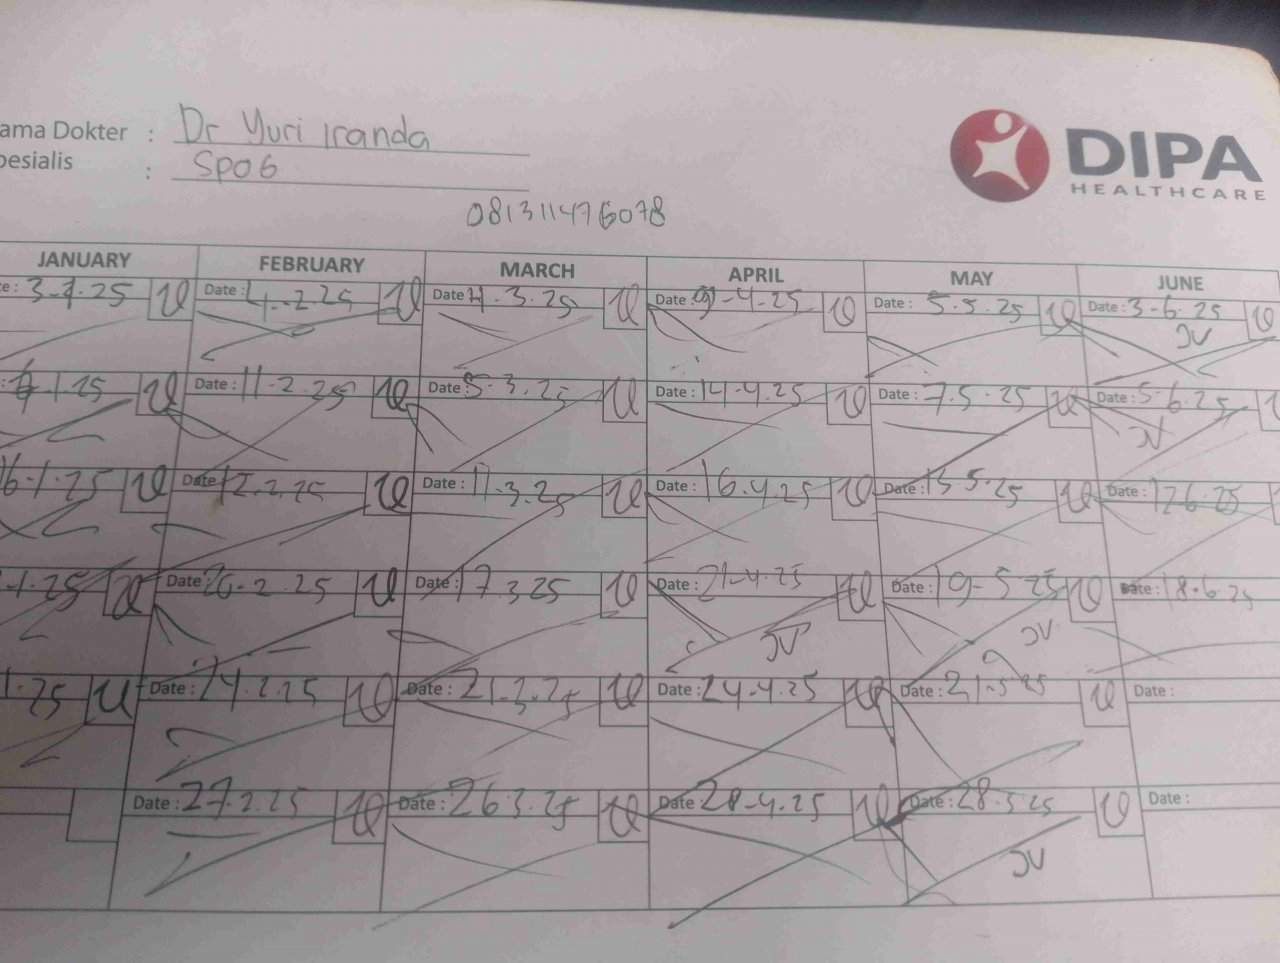 ama Dokter : Dr Yuri Iranda
pesialis : SPOG
DIPA
HEALTHCARE
081311476078
JANUARY FEBRUARY MARCH APRIL MAY JUNE
e: 3-1-25 Date: 4-2-25 Date: 4.3.25 Date: 9-4-25 Date: 5.5.25 Date: 3-6.25
JV
.1.25 Date: 11-2.25 Date: 5-3.25 Date: 14-4.25 Date: 7.5.25 Date: 5-6.25
JV
16-1.25 Date: 12.2.25 Date: 11.3.25 Date: 16.4.25 Date: 15 5.25 Date: 12 6.25
-1.25 Date: 20-2.25 Date: 17.3.25 Date: 21-4.25 Date: 19-5 25 Date: 18.6.25
JV JV
1.25 Date: 24.2.25 Date: 21.3.25 Date: 24-4.25 Date: 21.5.25 Date:
Date: 27.2.25 Date: 26.3.25 Date: 28-4.25 Date: 28.5.25 Date:
JV